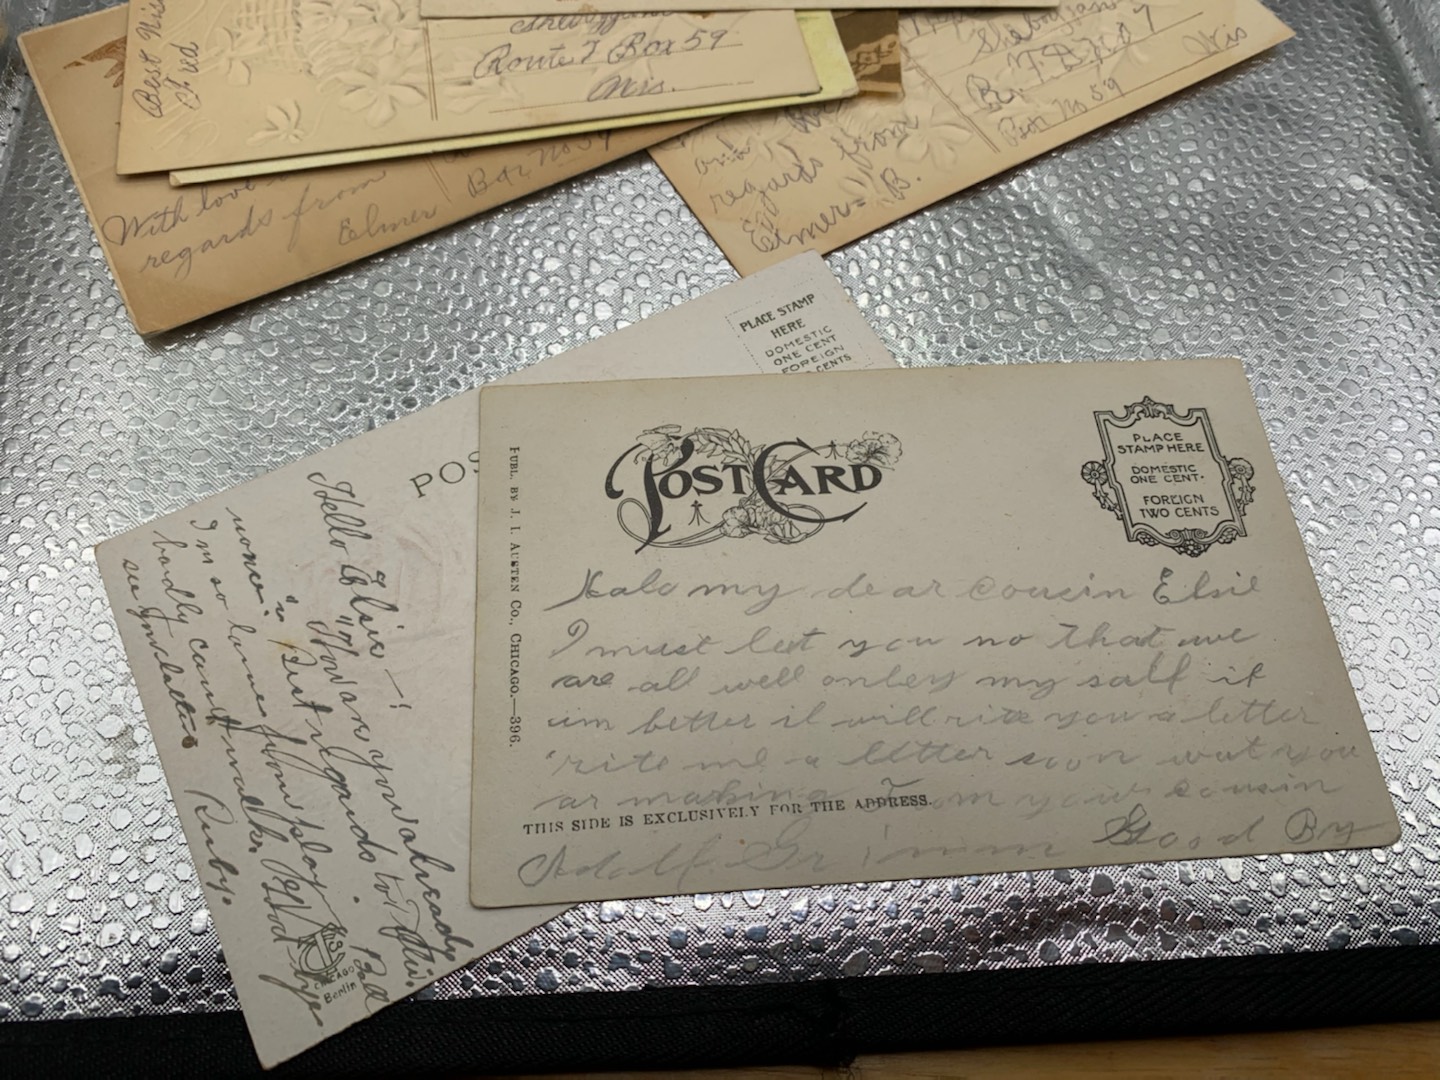 Best Wis
Fred
Route 7 Box 59
Wis.
With love
regards from
Elmer
Box No 59
and
regards from
Elmer= B.
Sheboygan
R. F. D. No 7
Box No 59
Wis
PLACE STAMP
HERE
DOMESTIC
ONE CENT
FOREIGN
CENTS
POS
Hello Elsie—!
"How are you already
once."
Best regards to
I'm so lame from play
hardly can't walk. Good-bye
see you later
Ruby.
CHICAGO
Berlin
PUBL. BY J. I. AUSTEN CO., CHICAGO.—396.
POST CARD
PLACE
STAMP HERE
DOMESTIC
ONE CENT.
FOREIGN
TWO CENTS
Halo my dear cousin Elsie
I must let you no that we
are all well onley my salf if
im better il will rite you a letter
rite me a letter soon wat you
ar making From your cousin
THIS SIDE IS EXCLUSIVELY FOR THE ADDRESS.
Good By